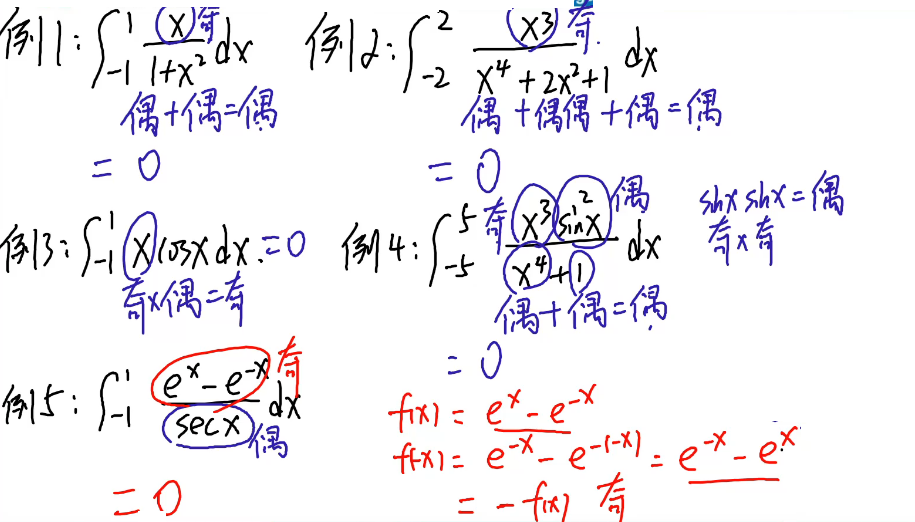 例1: ∫₋₁¹ x/(1+x²) dx 奇
偶+偶=偶
= 0
例2: ∫₋₂² x³/(x⁴+2x²+1) dx 奇
偶+偶偶+偶=偶
= 0
例3: ∫₋₁¹ x cosx dx = 0
奇×偶=奇
例4: ∫₋₅⁵ x³sin²x/(x⁴+1) dx 奇 偶
偶+偶=偶
= 0
sinx sinx = 偶
奇×奇
例5: ∫₋₁¹ (eˣ-e⁻ˣ)/secx dx 奇 偶
= 0
f(x) = eˣ - e⁻ˣ
f(-x) = e⁻ˣ - e⁻⁽⁻ˣ⁾ = e⁻ˣ - eˣ
= -f(x) 奇